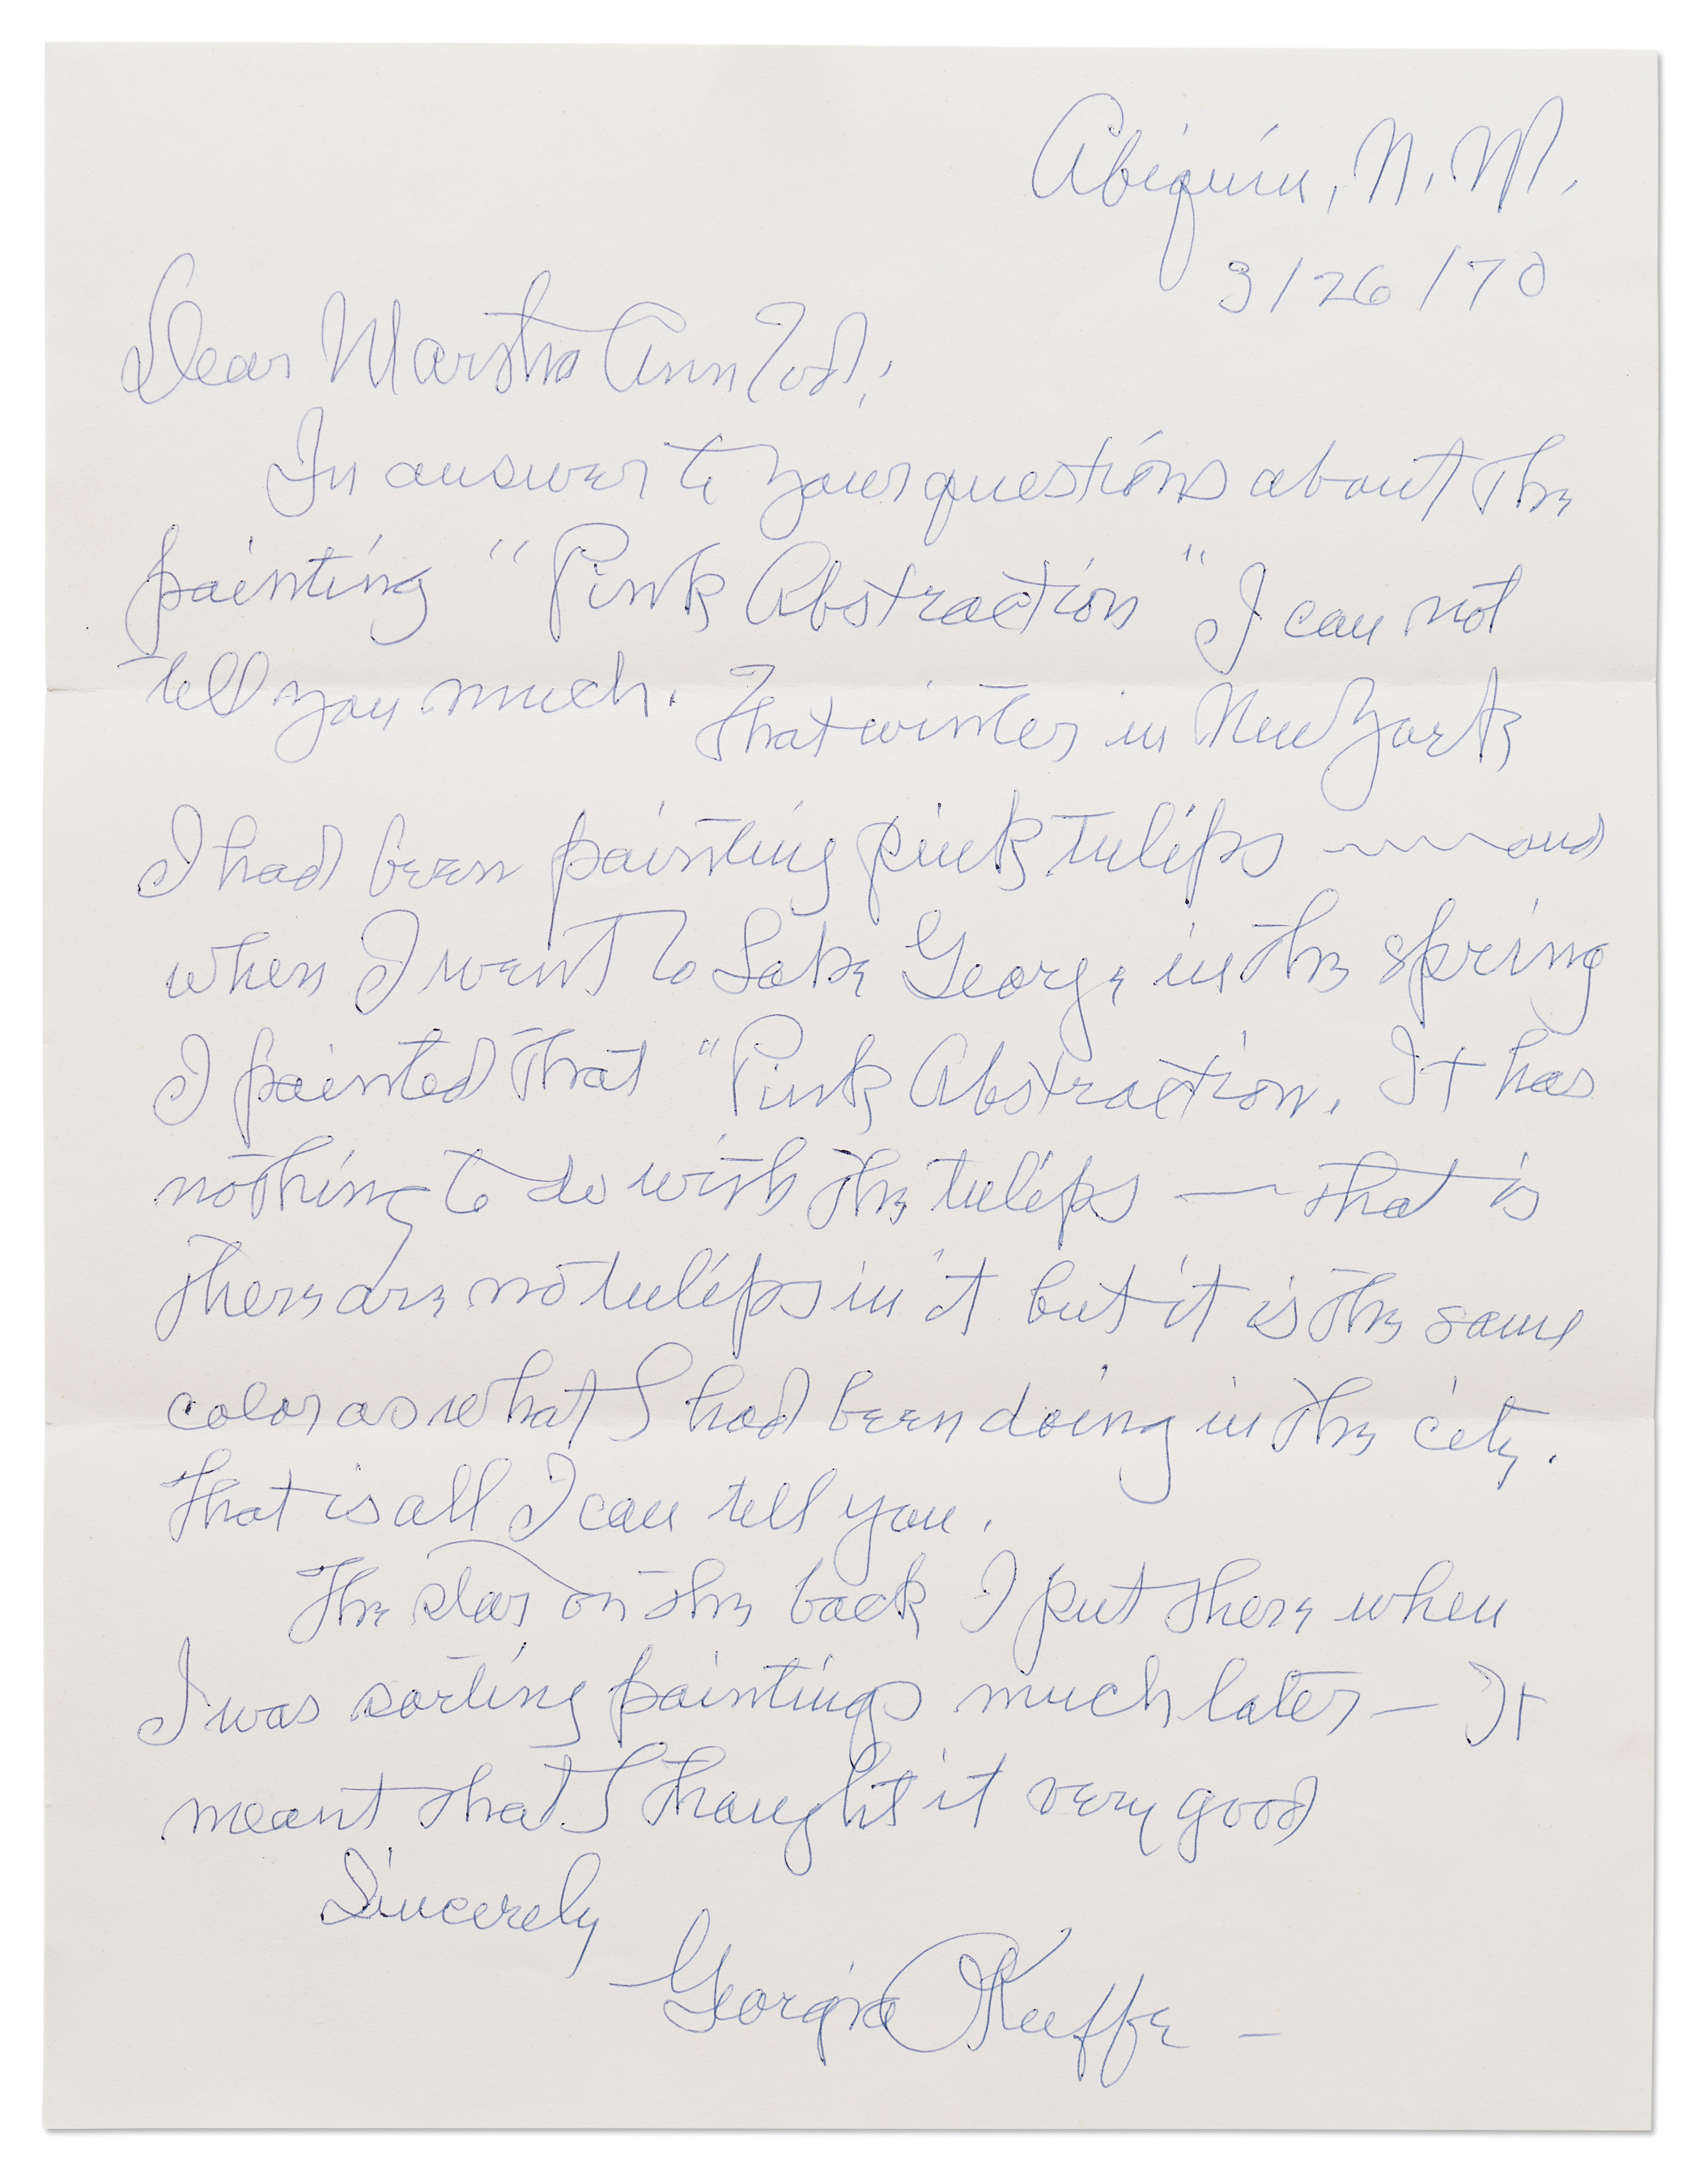 Abiquiu, N. M.
3/26/70
Dear Marsha Ann Tod;
In answer to your questions about the
painting "Pink Abstraction" I can not
tell you much. That winter in New York
I had been painting pink tulips ~~~ and
when I went to Lake George in the spring
I painted that "Pink Abstraction. It has
nothing to do with the tulips — that is
there are no tulips in it but it is the same
color as what I had been doing in the city.
That is all I can tell you.
The star on the back I put there when
I was sorting paintings much later — It
meant that I thought it very good
Sincerely
Georgia O'Keeffe —